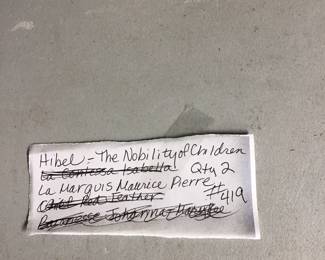 Hibel - The Nobility of Children
La Contessa Isabella
Qty 2
La Marquis Maurice Pierre
#419
Chief Red Feather
Baronesse Johanna